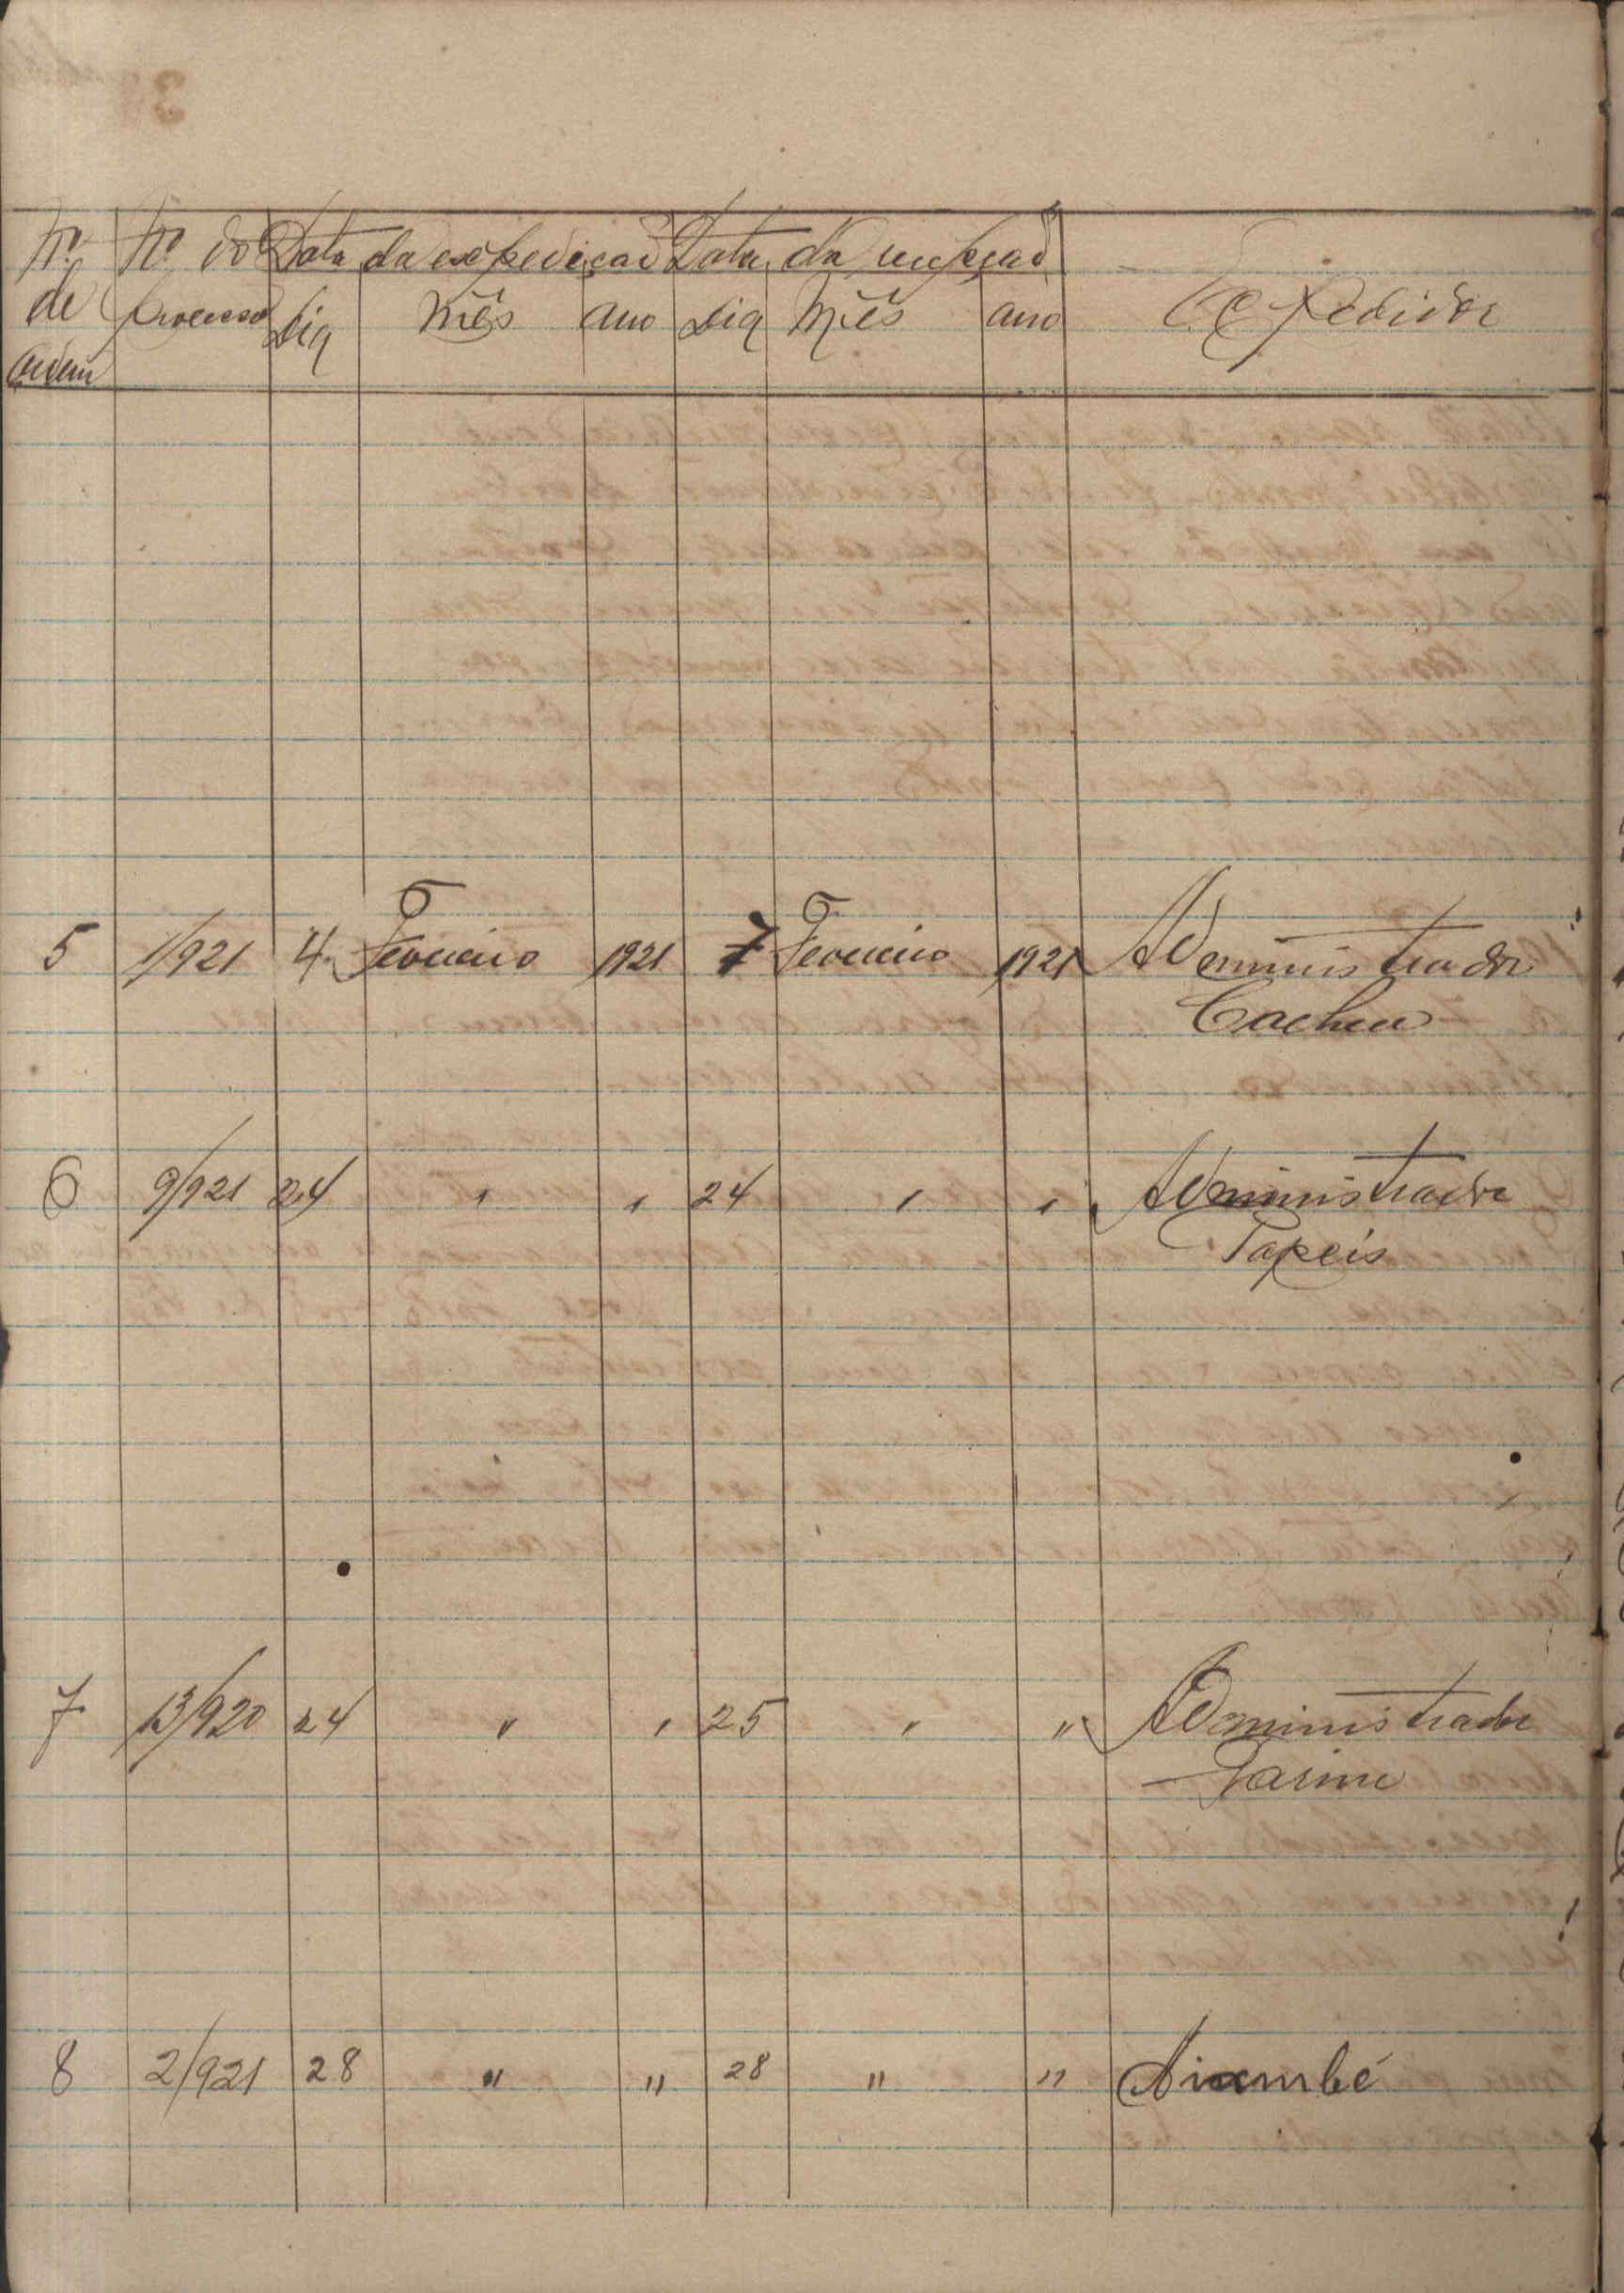 Nº Nº do Data da expedição Data da recepção
de processo Dia Mês ano Dia Mês ano Expedidor
ordem
5 1/921 4 Fevereiro 1921 7 Fevereiro 1921 Administrador
Cacheu
6 9/921 24 " " 24 " " Administrador
Papeis
7 13/920 24 " " 25 " " Administrador
Farim
8 2/921 28 " " 28 " "